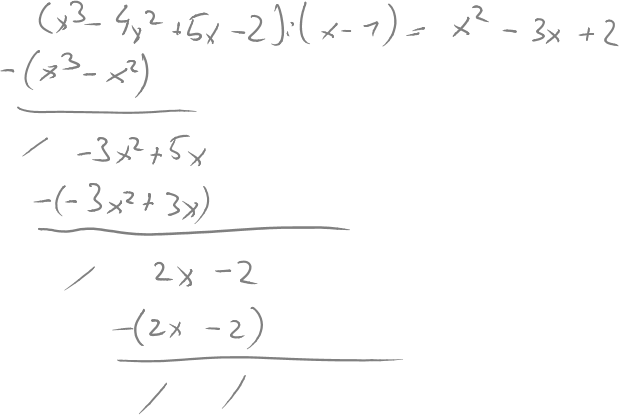 (x³ - 4x² + 5x - 2) : (x - 1) = x² - 3x + 2
-(x³ - x²)
/ -3x² + 5x
-(-3x² + 3x)
/ 2x - 2
-(2x - 2)
/ /